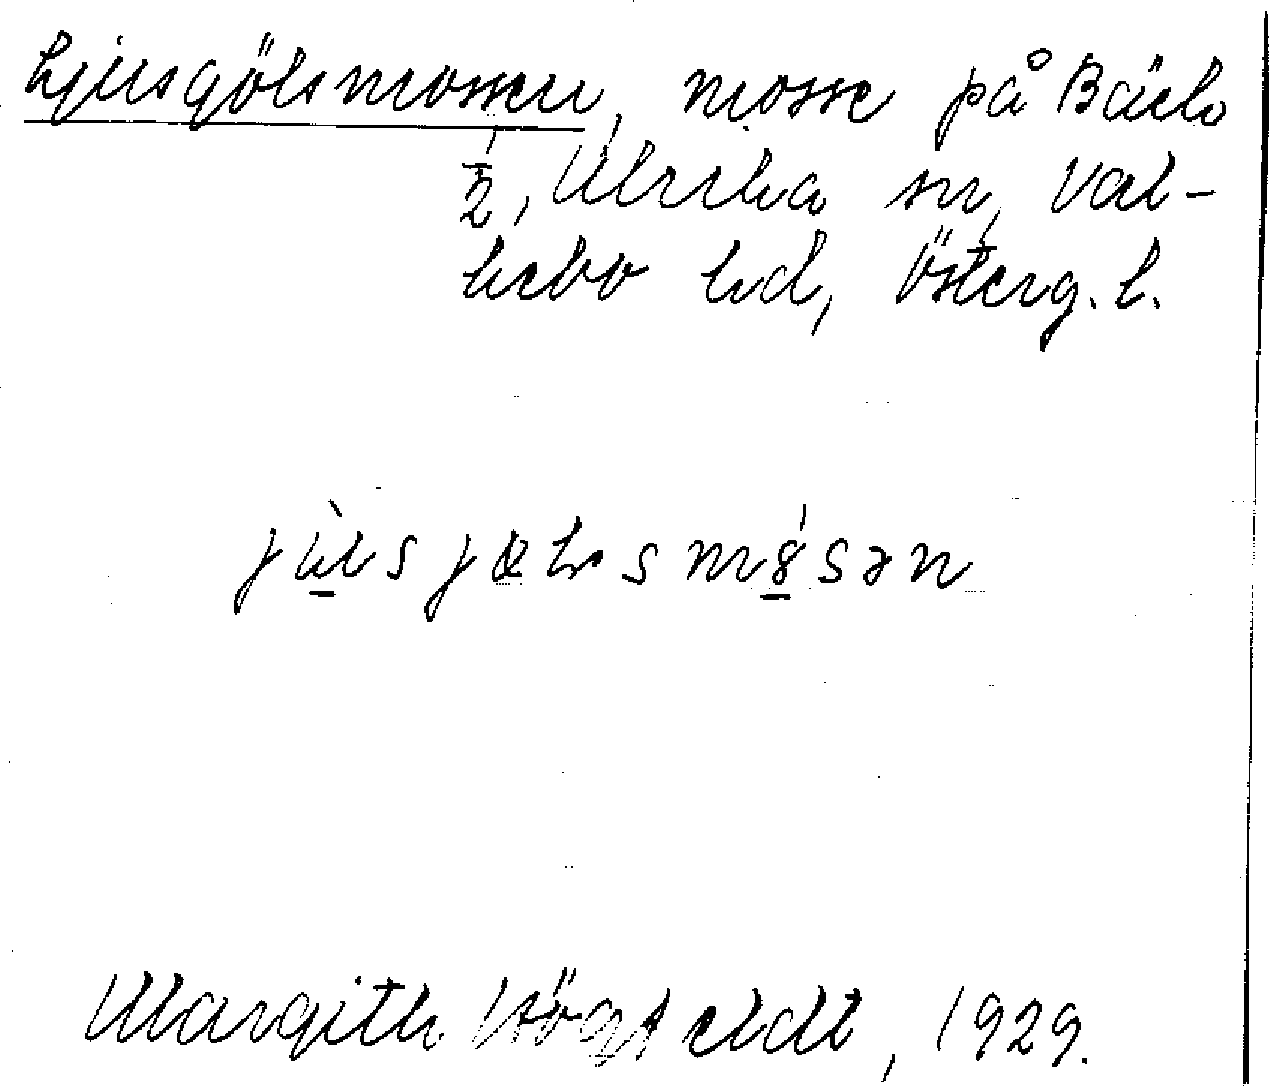 Ljusgölsmossen, mosse på Bäck
1/2, Ulrika sn, Val-
kebo hd, Österg. l.
jùsjølsmósən
Margith Högfeldt, 1929.